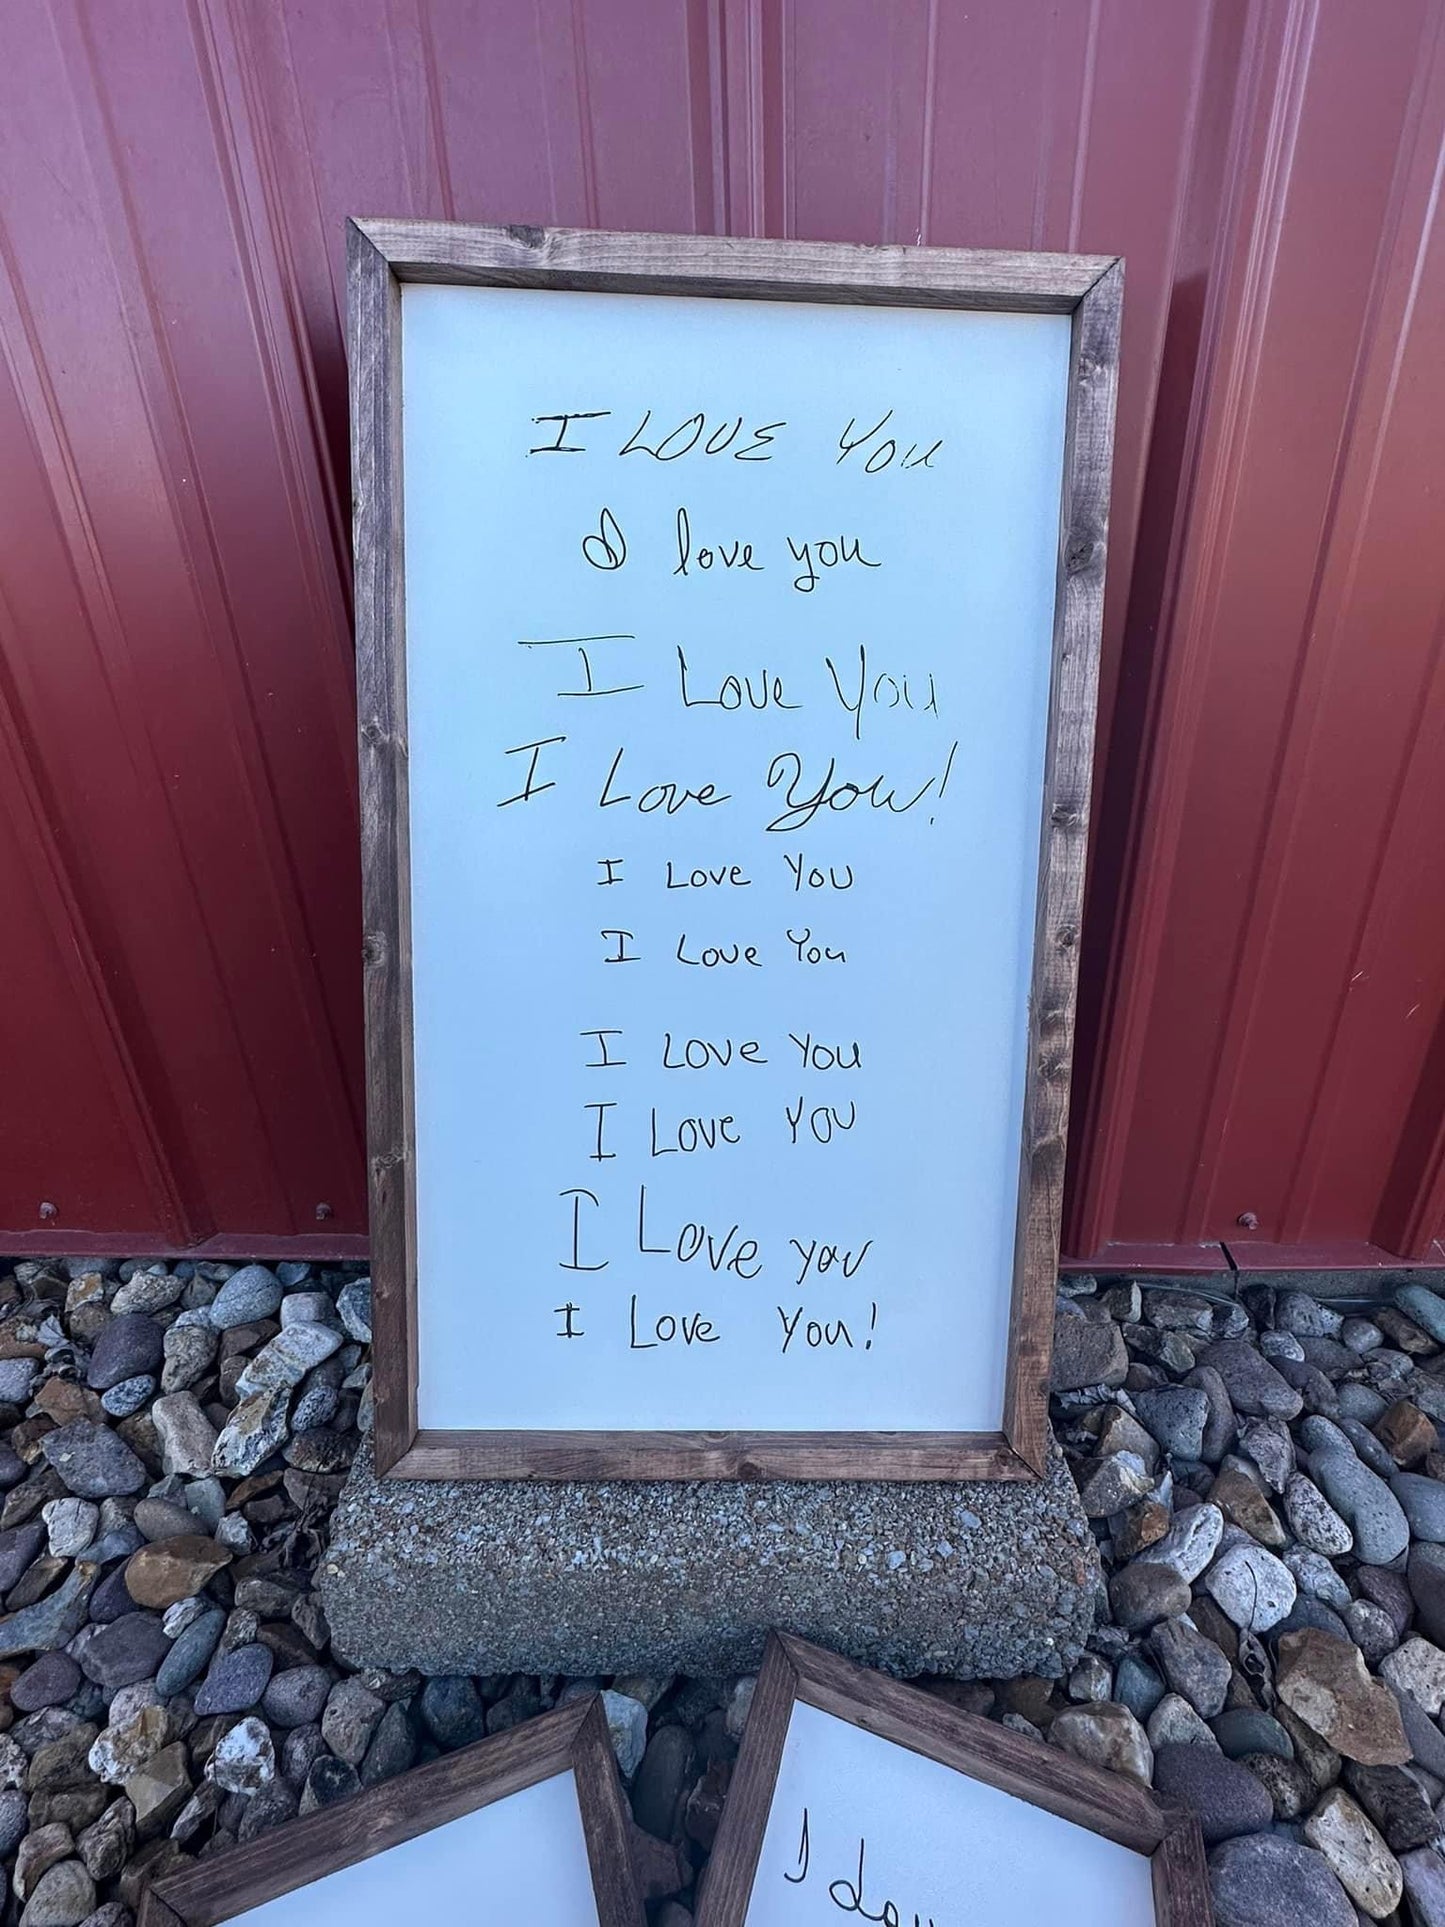 I LOVE You
I love you
I Love You
I Love You!
I Love You
I Love You
I Love You
I Love You
I Love you
I Love You!
I